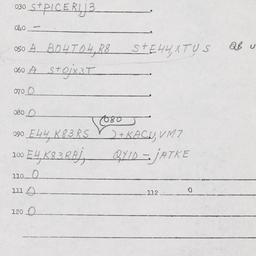 030 S+PICERIJ3
040 —
050 A BO4TO4,R8 S+E44,1TUS QB U
060 A S+OJX3T
070 O
080 O
080
090 E44,K83RS 2+KACU,VM7
100 E4,K83RAJ, QYID - JATKE
110 O
111 O 112 O
120 O